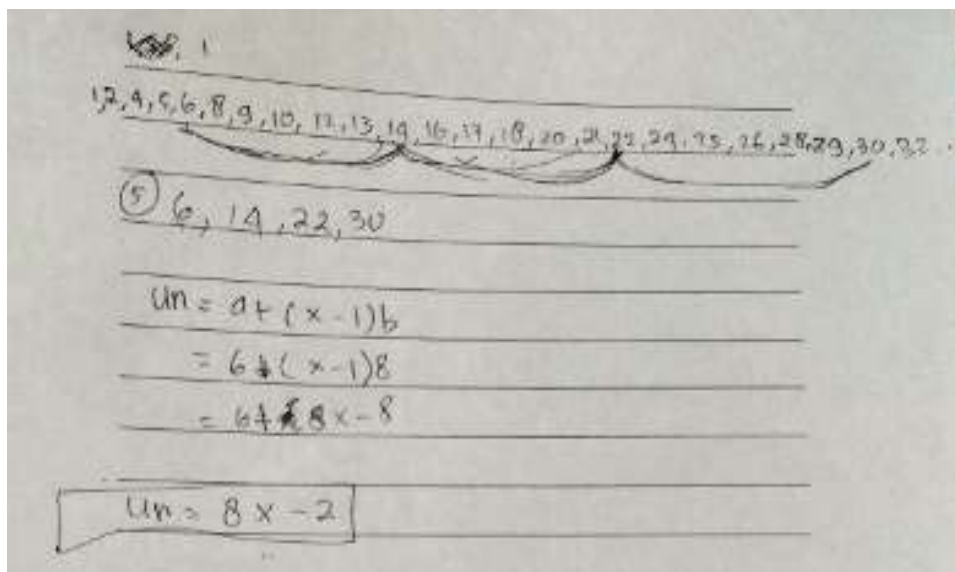 1
1,2,4,5,6,8,9,10,12,13,14,16,17,18,20,21,22,24,25,26,28,29,30,32
5 6, 14, 22, 30
Un = a + (x - 1)b
= 6 + (x - 1)8
= 6 + 8x - 8
Un = 8x - 2